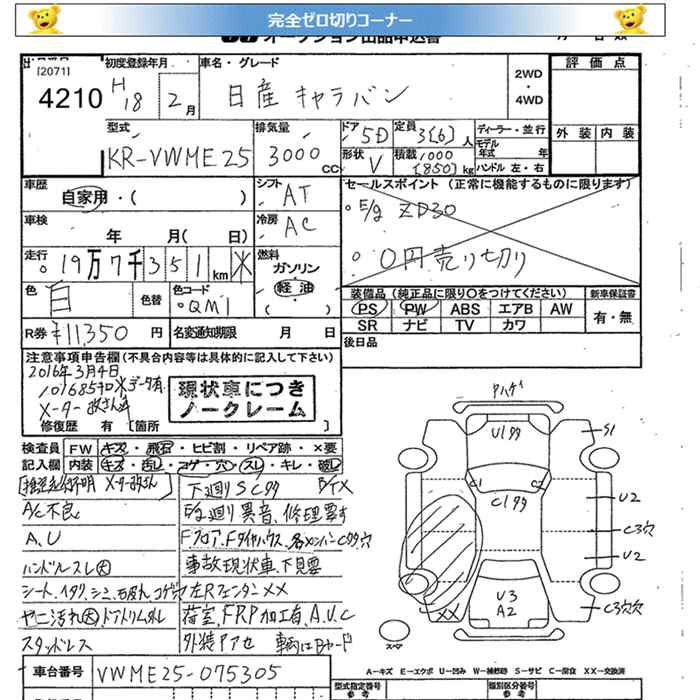 完全ゼロ切りコーナー
オークション出品申込書
[2071]
4210
初度登録年月
H18 2月
車名・グレード
日産 キャラバン
2WD
・
4WD
評価点
外装 内装
型式
KR-VWME25
排気量
3000 CC
ドア
5D
定員
3[6]人
形状
V
積載
1000
[850]kg
ディーラー・並行
モデル
年式 年
ハンドル 左・右
車歴
自家用・( )
シフト
AT
車検
年 月( 日)
冷房
AC
走行
19万7千351km ※
燃料
ガソリン
軽油
( )
色
白
色替
色コード
QM1
R券 ¥11,350 円
名変通知期限 月 日
セールスポイント (正常に機能するものに限ります)
○E/g ZD30
○0円売り切り
装備品 (純正品に限り○をつけてください)
新車保証書
PS PW ABS エアB AW
SR ナビ TV カワ
有・無
後日品
注意事項申告欄(不具合内容等は具体的に記入して下さい)
2016年3月4日
メーター改ざん車
現状車につき
ノークレーム
修復歴 有 [箇所 ]
検査員 FW キズ・飛石・ヒビ割・リペア跡・×要
記入欄 内装 キズ・汚レ・コゲ・穴・スレ・キレ・破レ
A/C不良
A,U
ハンドルスレ大
ヤニ汚れ大
スタッドレス
下廻りSC
E/g廻り異音、修理要す
事故現状車、下見要
左RフェンダーXX
荷室、FRP加工有、A.U.C
外装アセ
車台番号 VWME25-075305
型式指定番号
参考
類別区分番号
参考
U1
S1
C1 C2
U2
C3穴
U2
U3
A2
C3穴穴
XX
スペア
A-キズ E-エクボ U-凹み W-補修跡 S-サビ C-腐食 XX-交換済